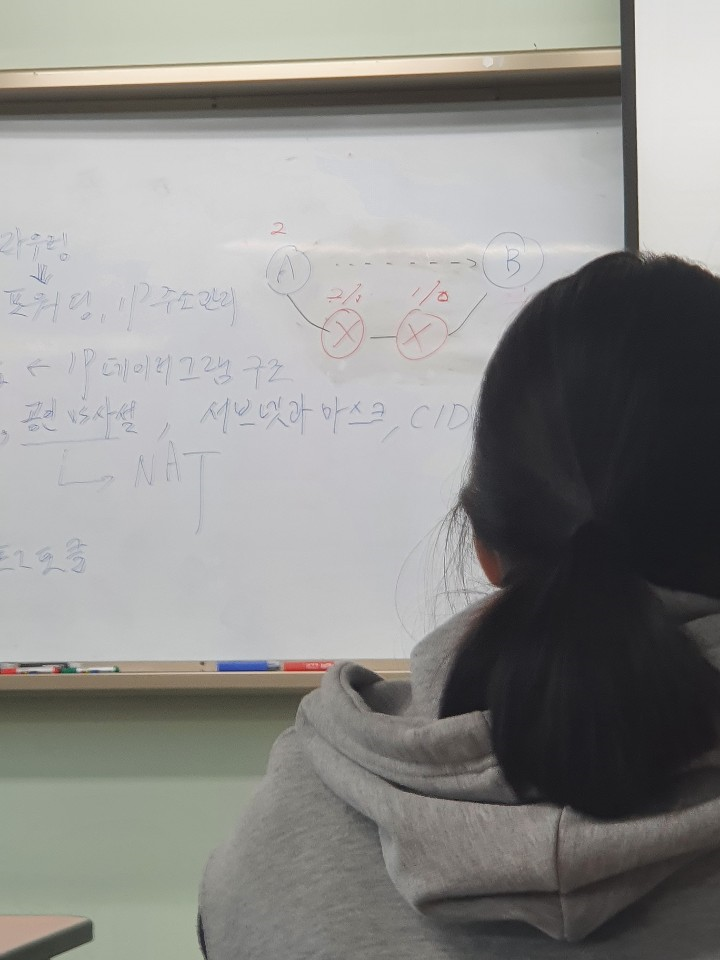 라우팅
포워딩, IP 주소관리
← IP 데이터그램 구조
vs 사설, 서브넷과 마스크, CID
NAT
토콜
2
A
B
2/1
1/0
X
X